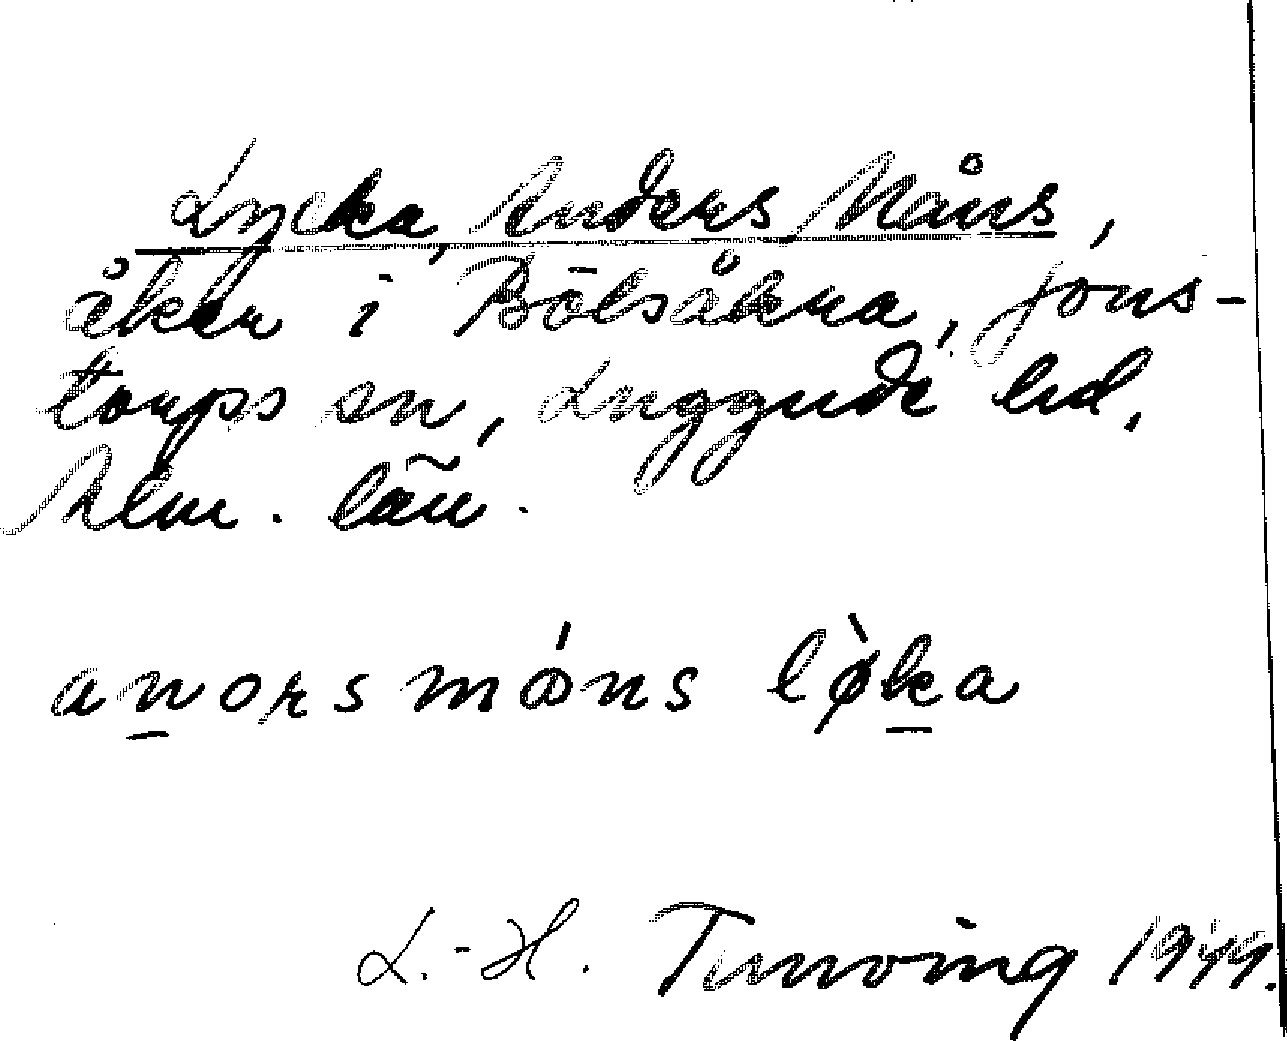 Lycka, Anders Måns,
åker i Bölsåkra, Jons-
torps sn, Luggude hd,
Klm. län.
anors måns løka
L.-H. Tunving 1949.